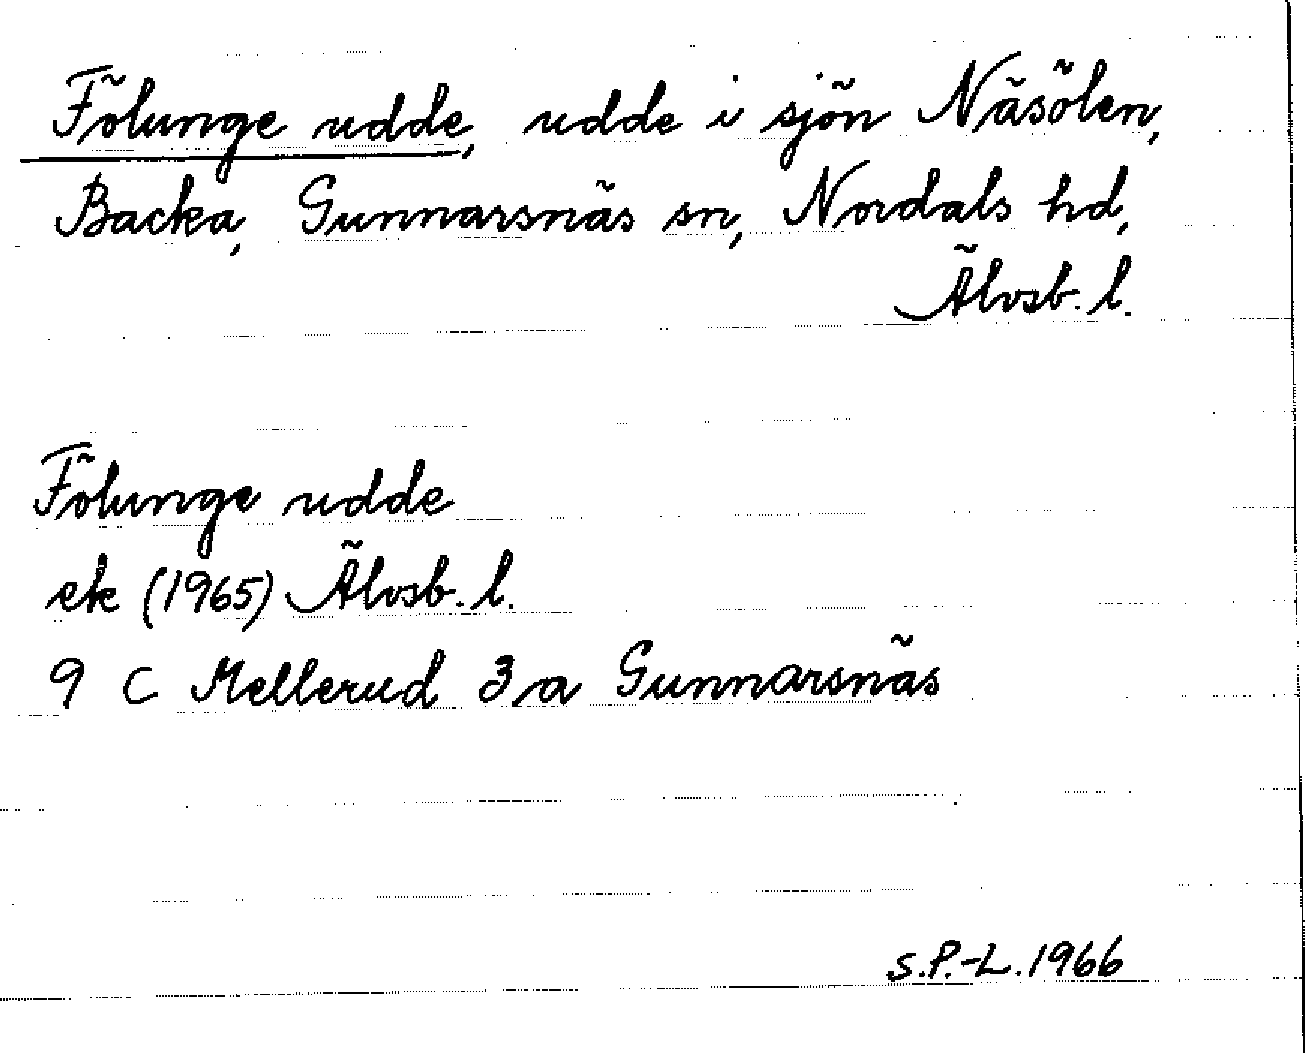 Fölunge udde, udde i sjön Näsölen,
Backa, Gunnarsnäs sn, Nordals hd,
Älvsb. l.
Fölunge udde
ek (1965) Älvsb. l.
9 C Mellerud 3 a Gunnarsnäs
S.P.-L. 1966